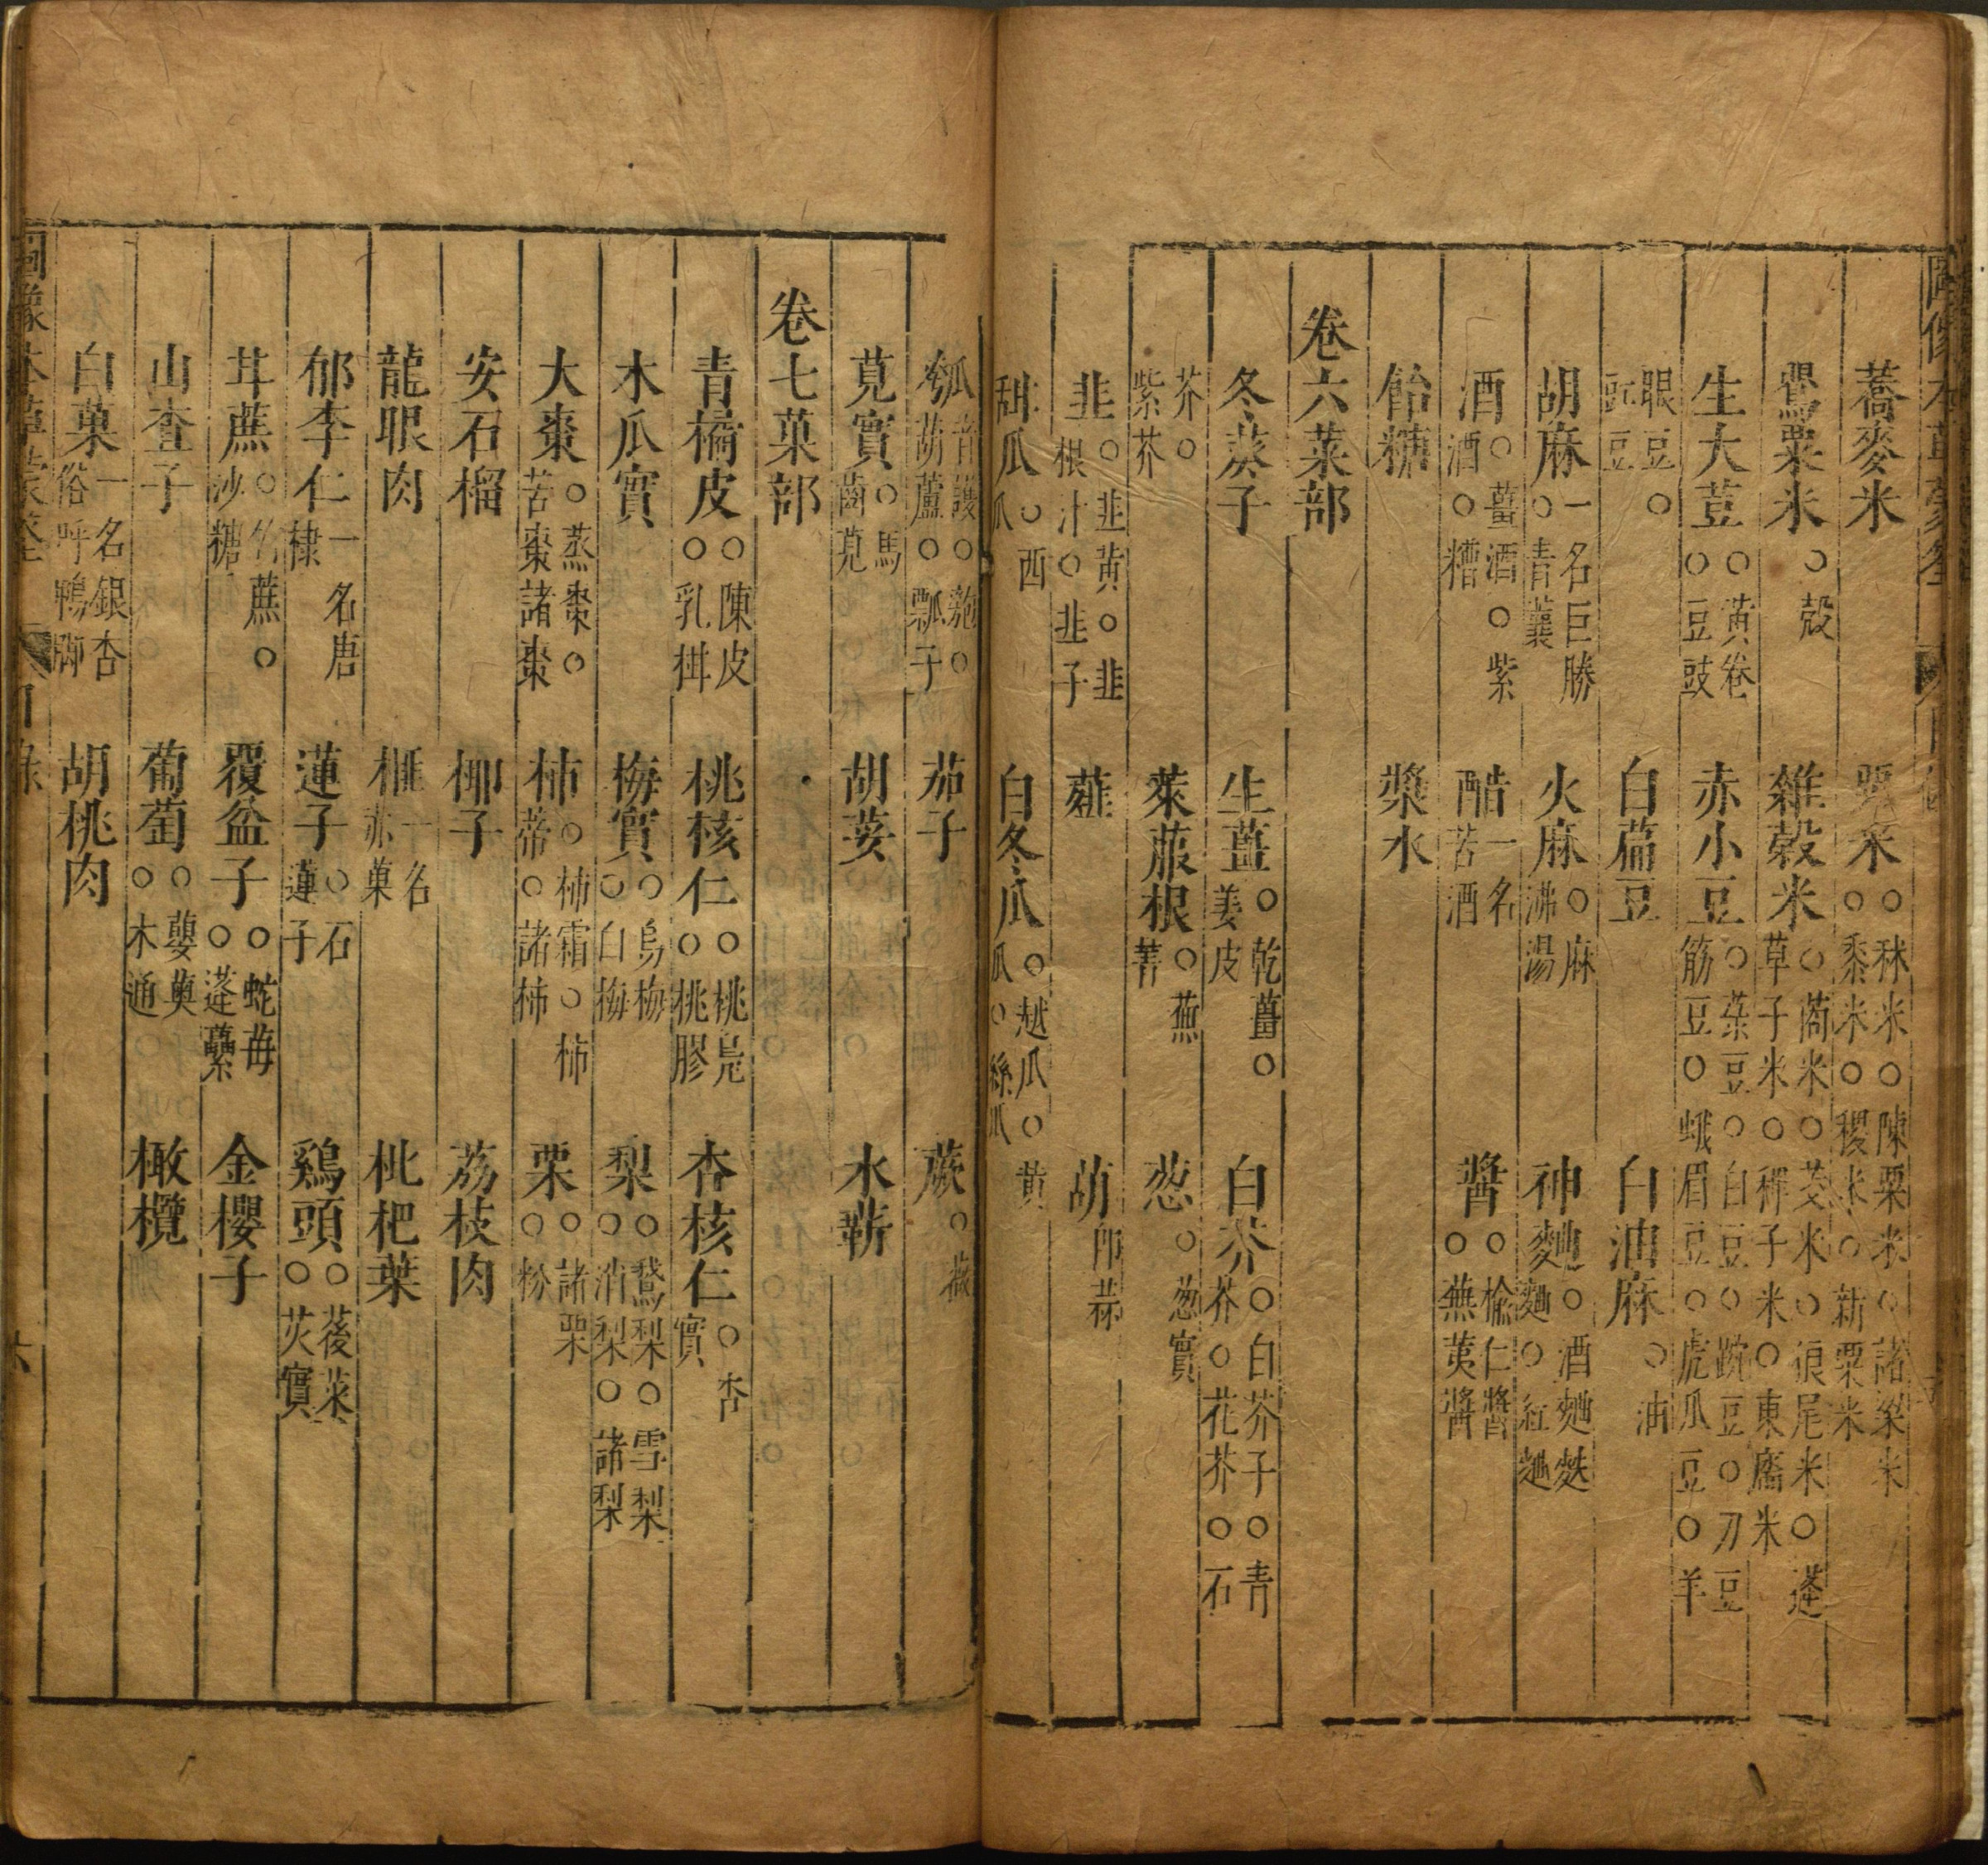 蕎麥米　粟米○秫米○陳粟米○諸粱米○黍米○稷米○新粟米
罌粟米○殼　雜穀米○䅟米○茭米○狼尾米○蓬草子米○稗子米○東廧米
生大荳○黃卷○豆豉　赤小豆○菉豆○白豆○䝁豆○刀豆筋豆○蛾眉豆○虎瓜豆○羊
眼豆○豇豆　白萹豆　白油麻○油
胡麻一名巨勝○青蘘　火麻○麻沸湯　神麯○酒麯麩麯○紅麯
酒○薑酒○紫酒○糟　酷一名苦酒　醬○榆仁醬○蕪荑醬
飴糖　漿水
卷六菜部
冬葵子　生薑○乾薑○姜皮　白芥○白芥子○青芥○花芥○石
芥○紫芥　萊菔根○蕪菁　葱○葱實
韭○韭黃○韭根汁○韭子　薤　葫即蒜
甜瓜○西瓜　白冬瓜○越瓜○黃瓜○絲瓜
瓠音護○匏○葫蘆○瓢子　茄子　蕨○薇
莧實○馬齒莧　胡荽　水蘄
卷七菓部
青橘皮○陳皮○乳柑　桃核仁○桃梟○桃膠　杏核仁○杏實
木瓜實　梅實○烏梅○白梅　梨○鵞梨○雪梨○消梨○諸梨
大棗○蒸棗○苦棗諸棗　柿○柿霜○柿蒂○諸柿　栗○諸栗○粉
安石榴　椰子　荔枝肉
龍眼肉　榧一名赤菓　枇杷葉
郁李仁一名唐棣　蓮子○石蓮子　鷄頭○菱菜○芡實
甘蔗○竹蔗○沙糖　覆盆子○蛇苺○蓬虆　金櫻子
山查子　葡萄○蘡薁○木通　橄欖
白菓一名銀杏俗呼鴨脚　胡桃肉
六